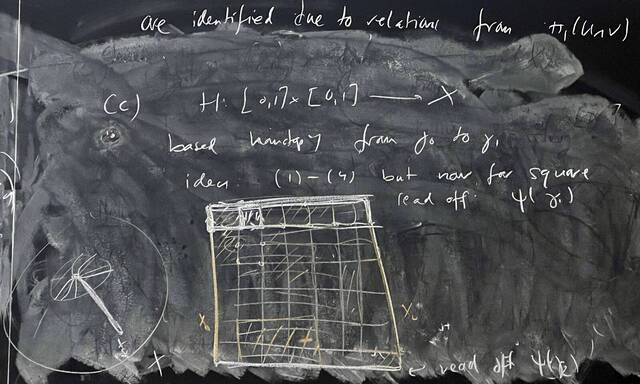 are identified due to relations from π₁(U∩V)
(c) H: [0,1]×[0,1] → X
based homotopy from γ₀ to γ₁
idea: (1)-(4) but now for square
read off: ψ(γ₁)
x₀
x₀
x₀
X
read off ψ(γ₀)